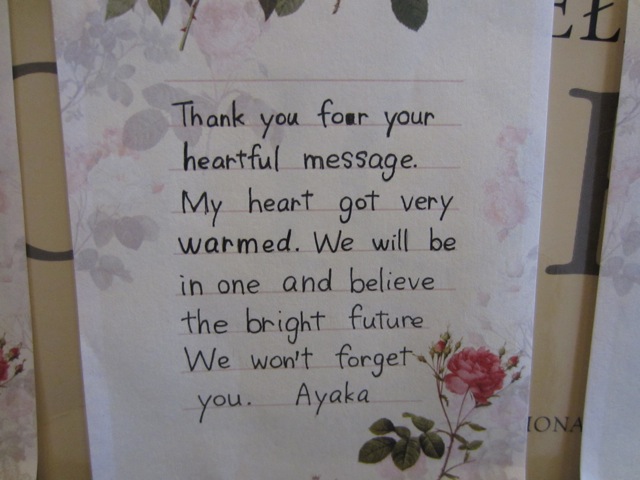 Thank you foar your
heartful message.
My heart got very
warmed. We will be
in one and believe
the bright future
We won't forget
you. Ayaka
IONA